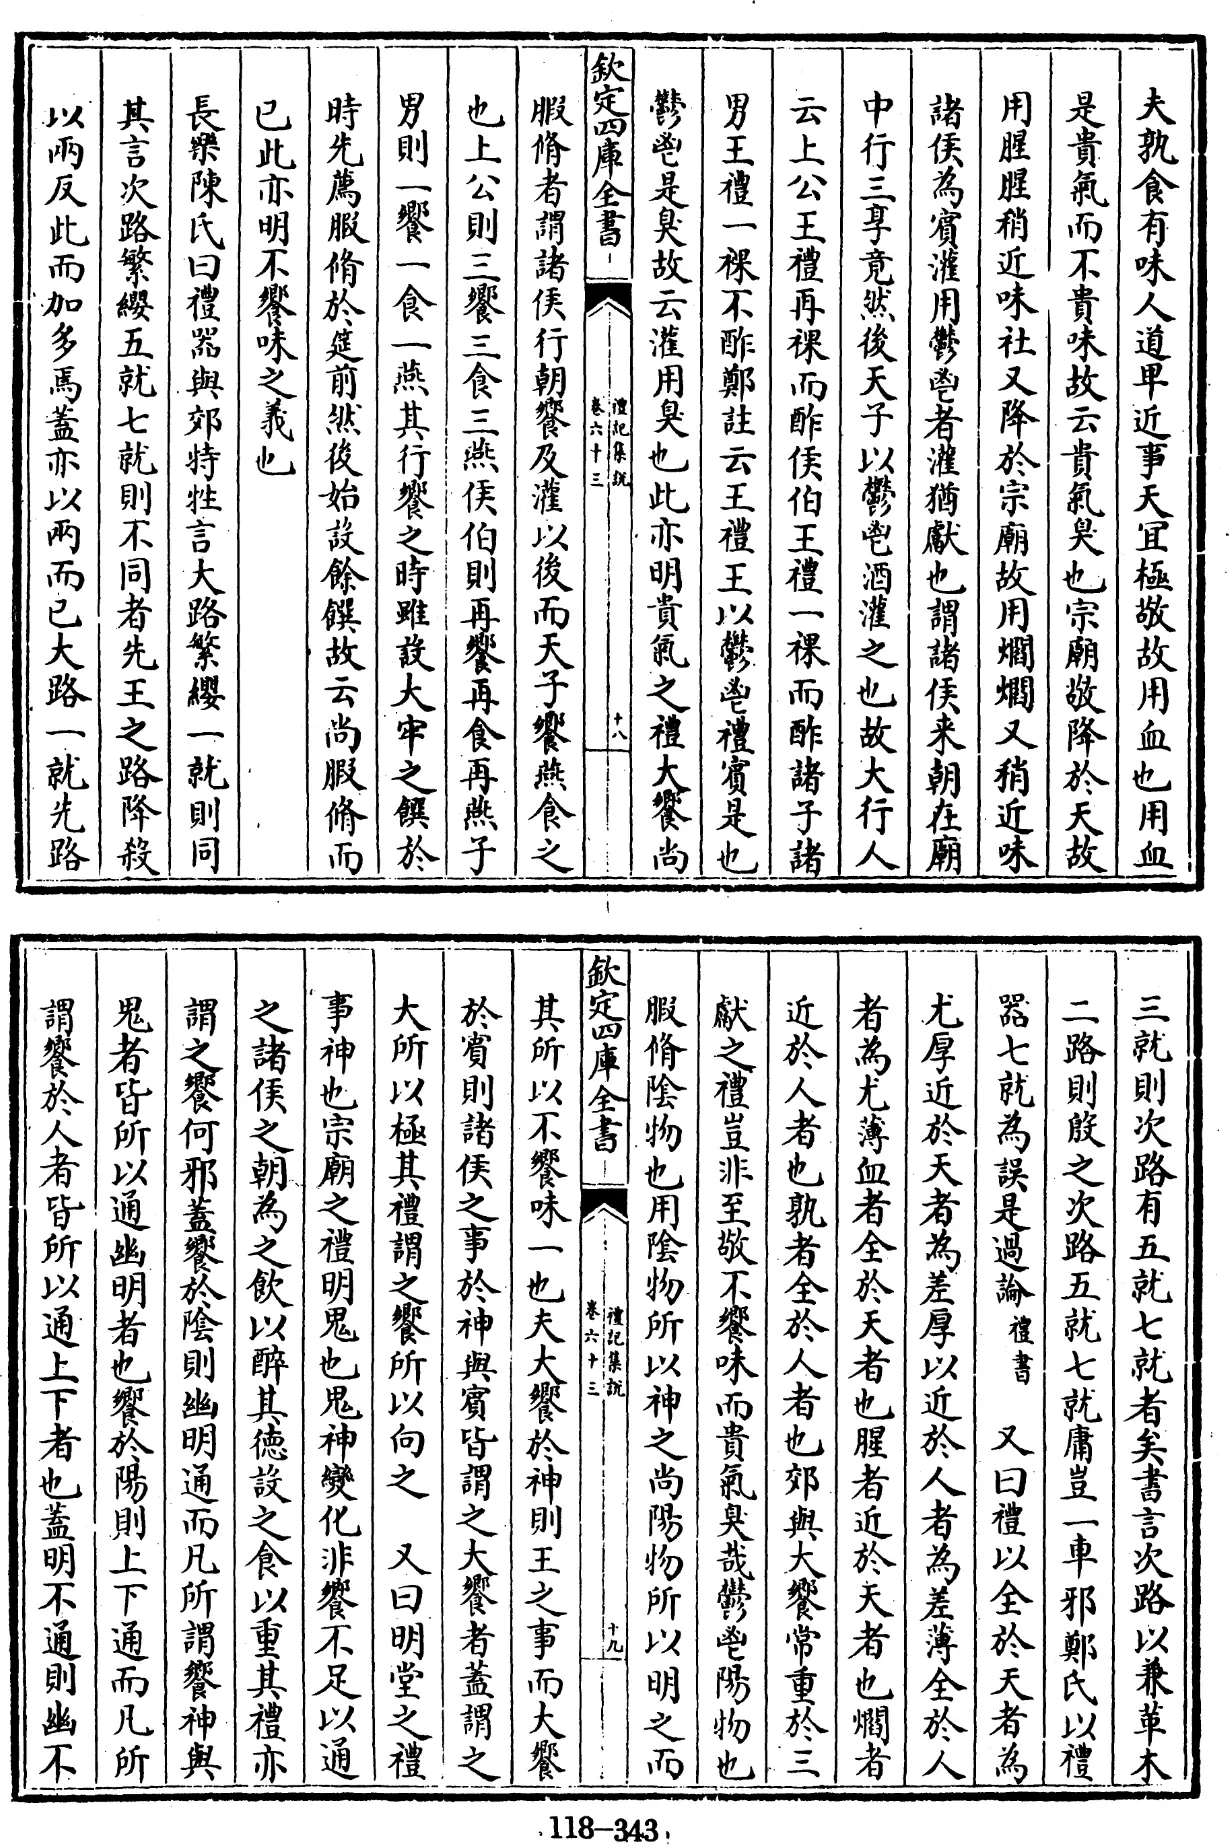 夫孰食有味人道卑近事天宜極敬故用血也用血
是貴氣而不貴味故云貴氣臭也宗廟敬降於天故
用腥腥稍近味社又降於宗廟故用爓爓又稍近味
諸侯為賓灌用鬱鬯者灌猶獻也謂諸侯来朝在廟
中行三享竟然後天子以鬱鬯酒灌之也故大行人
云上公王禮再祼而酢侯伯王禮一祼而酢諸子諸
男王禮一祼不酢鄭註云王禮王以鬱鬯禮賓是也
鬱鬯是臭故云灌用臭也此亦明貴氣之禮大饗尚
欽定四庫全書
禮記集說
卷六十三
十八
腶脩者謂諸侯行朝饗及灌以後而天子饗燕食之
也上公則三饗三食三燕侯伯則再饗再食再燕子
男則一饗一食一燕其行饗之時雖設大牢之饌於
時先薦腶脩於筵前然後始設餘饌故云尚腶脩而
已此亦明不饗味之義也
長樂陳氏曰禮器與郊特牲言大路繁纓一就則同
其言次路繁纓五就七就則不同者先王之路降殺
以兩反此而加多焉蓋亦以兩而已大路一就先路
三就則次路有五就七就者矣書言次路以兼革木
二路則殷之次路五就七就庸豈一車邪鄭氏以禮
器七就為誤是過論禮書　又曰禮以全於天者為
尤厚近於天者為差厚以近於人者為差薄全於人
者為尤薄血者全於天者也腥者近於天者也爓者
近於人者也孰者全於人者也郊與大饗常重於三
獻之禮豈非至敬不饗味而貴氣臭哉鬱鬯陽物也
腶脩陰物也用陰物所以神之尚陽物所以明之而
欽定四庫全書
禮記集說
卷六十三
十九
其所以不饗味一也夫大饗於神則王之事而大饗
於賓則諸侯之事於神與賓皆謂之大饗者蓋謂之
大所以極其禮謂之饗所以向之　又曰明堂之禮
事神也宗廟之禮明鬼也鬼神變化非饗不足以通
之諸侯之朝為之飲以醉其德設之食以重其禮亦
謂之饗何邪蓋饗於陰則幽明通而凡所謂饗神與
鬼者皆所以通幽明者也饗於陽則上下通而凡所
謂饗於人者皆所以通上下者也蓋明不通則幽不
118-343